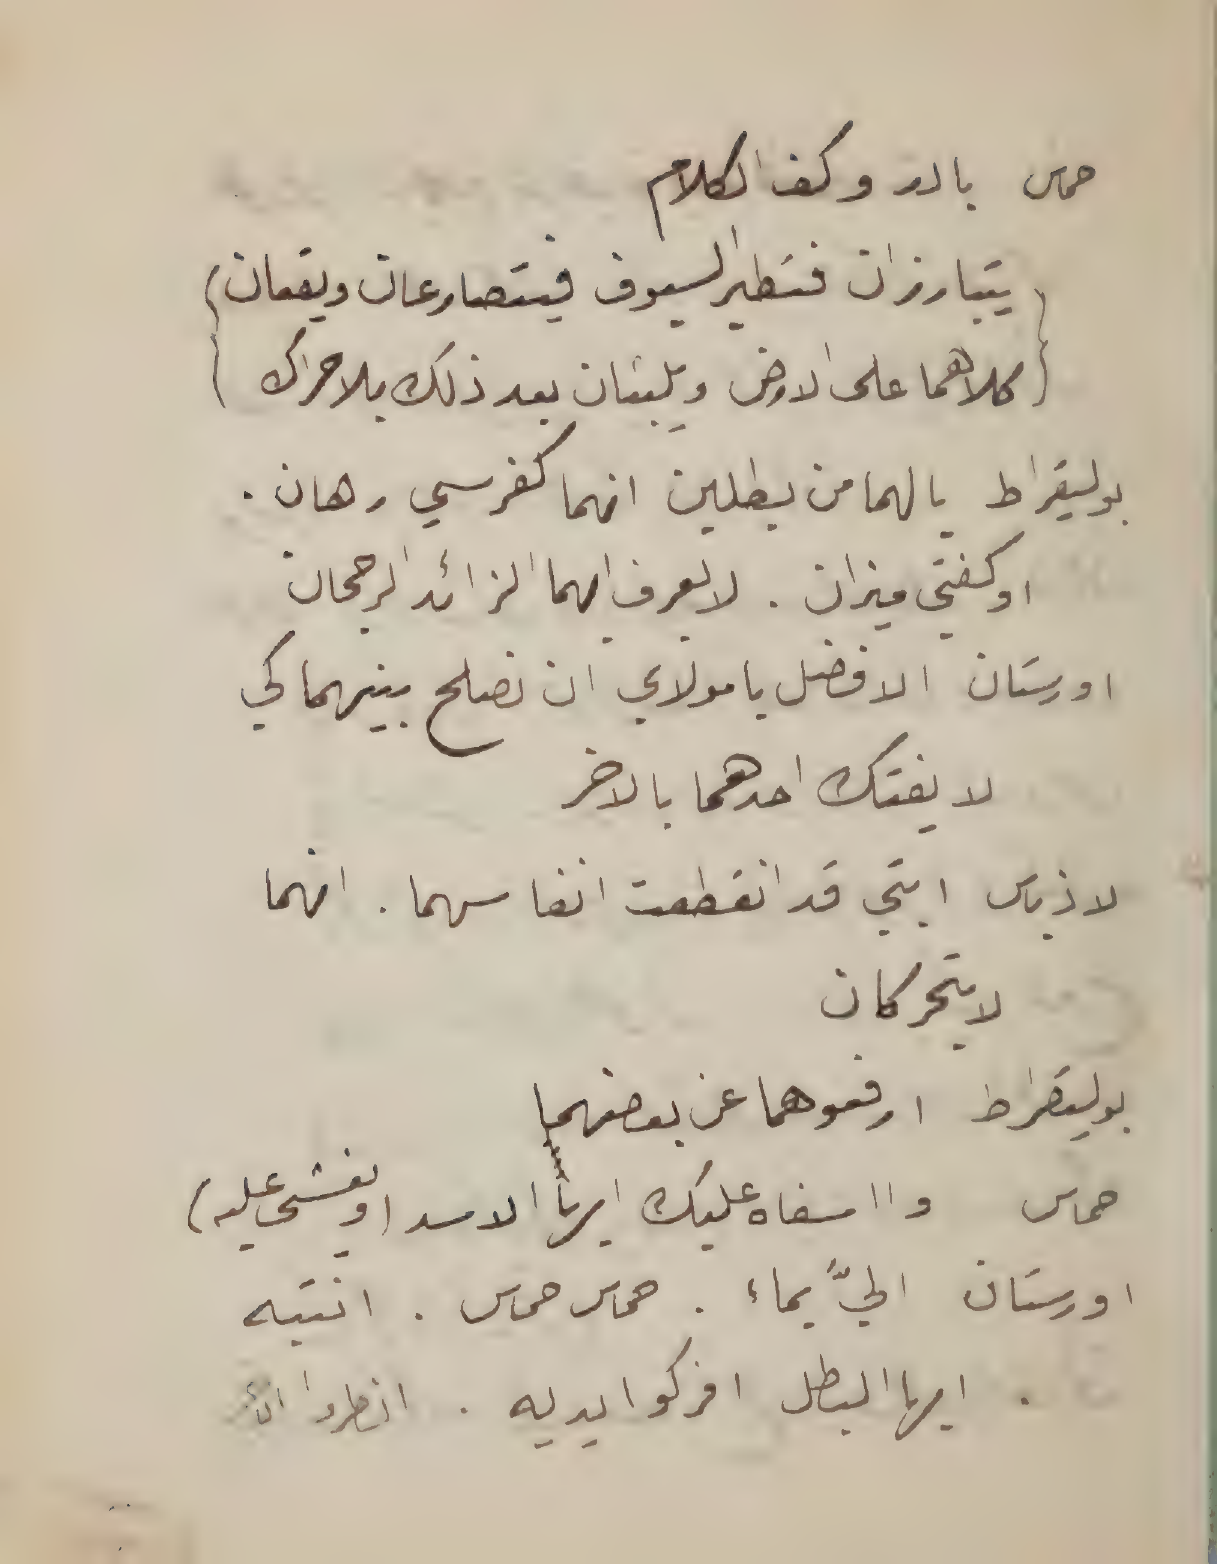 حماس بادر وكف الكلام
(يتبارزان فتطير السيوف فيتصارعان ويقعان)
(كلاهما على الارض ويلبثان بعد ذلك بلا حراك)
بوليقراط يا لهما من بطلين انهما كفرسي رهان .
او كفتي ميزان . لا يعرف ايهما الزائد الرجحان
اورستان الافضل يا مولاي ان نصلح بينهما كي
لا يفتك احدهما بالاخر
لاذياس ابتي قد انقطعت انفاسهما . انهما
لا يتحركان
بوليقراط ارفعوهما عن بعضهما
حماس وا اسفاه عليك ايها الاسد (ويغشى عليه)
اورستان اليَّ بماء . حماس حماس . انتبه
. ايها البطل افركوا يديه . انظروا